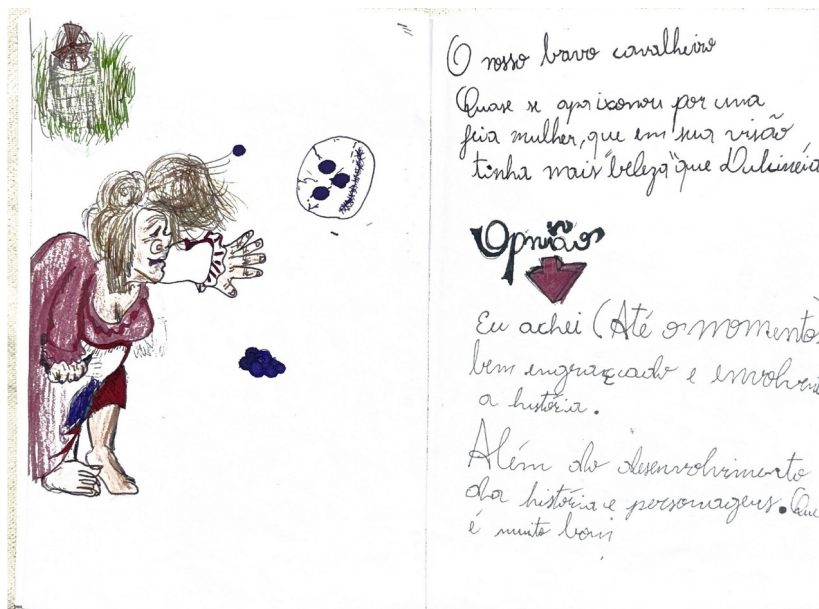 O nosso bravo cavalheiro
Quase se apaixonou por uma
feia mulher, que em sua visão
tinha mais "beleza" que Dulcinéia
Opinião
Eu achei (Até o momento)
bem engraçado e envolvent
a história.
Além do desenvolvimento
da história e personagens. Que
é muito bom